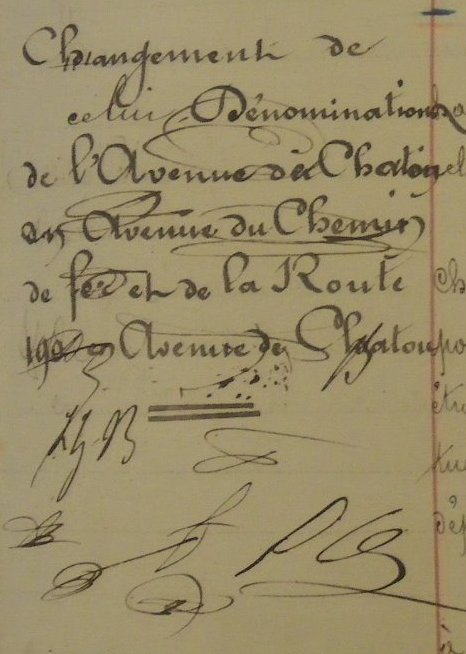 Changement de
celui Dénomination
de l'Avenue de Chatou
en Avenue du Chemin
de fer et de la Route
190 en Avenue de Chatou